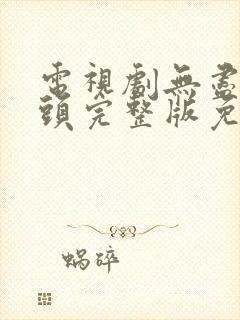 電視劇無盡
頭完整版免
蝸碎